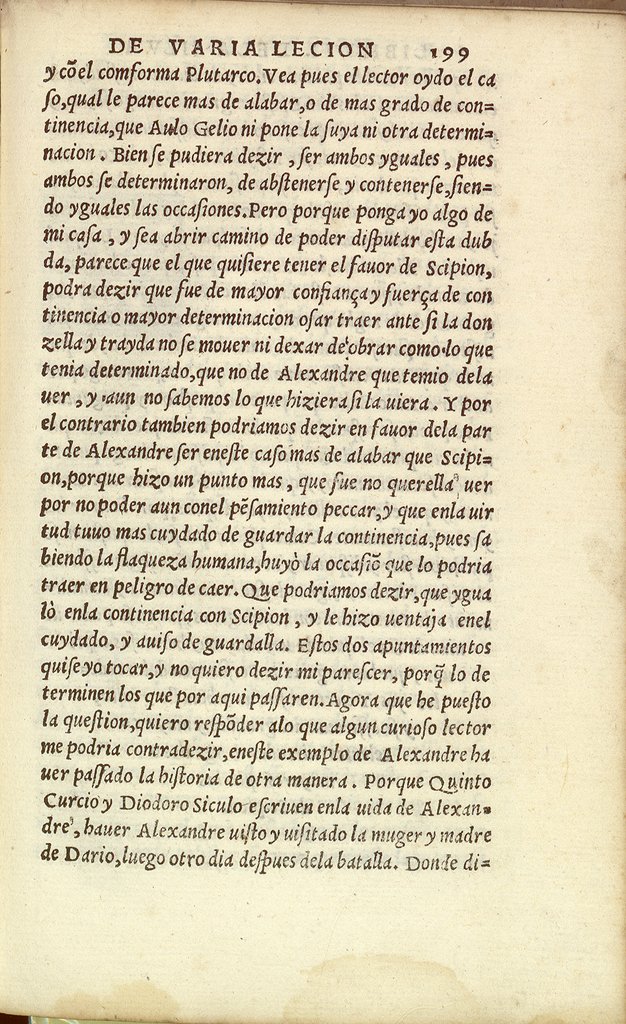 DE VARIA LECION 199
y cõel comforma Plutarco. Vea pues el lector oydo el ca
ſo, qual le parece mas de alabar, o de mas grado de con=
tinencia, que Aulo Gelio ni pone la ſuya ni otra determi=
nacion. Bien ſe pudiera dezir, ſer ambos yguales, pues
ambos ſe determinaron, de abſtenerſe y contenerſe, ſien=
do yguales las occaſiones. Pero porque ponga yo algo de
mi caſa, y ſea abrir camino de poder diſputar eſta dub
da, parece que el que quiſiere tener el fauor de Scipion,
podra dezir que fue de mayor confiança y fuerça de con
tinencia o mayor determinacion oſar traer ante ſi la don
zella y trayda no ſe mouer ni dexar de obrar como lo que
tenia determinado, que no de Alexandre que temio dela
uer, y aun no ſabemos lo que hiziera ſi la uiera. Y por
el contrario tambien podriamos dezir en fauor dela par
te de Alexandre ſer eneſte caſo mas de alabar que Scipi=
on, porque hizo un punto mas, que fue no querella uer
por no poder aun conel pẽſamiento peccar, y que enla uir
tud tuuo mas cuydado de guardar la continencia, pues ſa
biendo la flaqueza humana, huyò la occaſiõ que lo podria
traer en peligro de caer. Que podriamos dezir, que ygua
lò enla continencia con Scipion, y le hizo uentaja enel
cuydado, y auiſo de guardalla. Eſtos dos apuntamientos
quiſe yo tocar, y no quiero dezir mi pareſcer, porq̃ lo de
terminen los que por aqui paſſaren. Agora que he pueſto
la queſtion, quiero reſpõder alo que algun curioſo lector
me podria contradezir, eneſte exemplo de Alexandre ha
uer paſſado la hiſtoria de otra manera. Porque Quinto
Curcio y Diodoro Siculo eſcriuen enla uida de Alexan=
dre, hauer Alexandre uiſto y uiſitado la muger y madre
de Dario, luego otro dia deſpues dela batalla. Donde di=